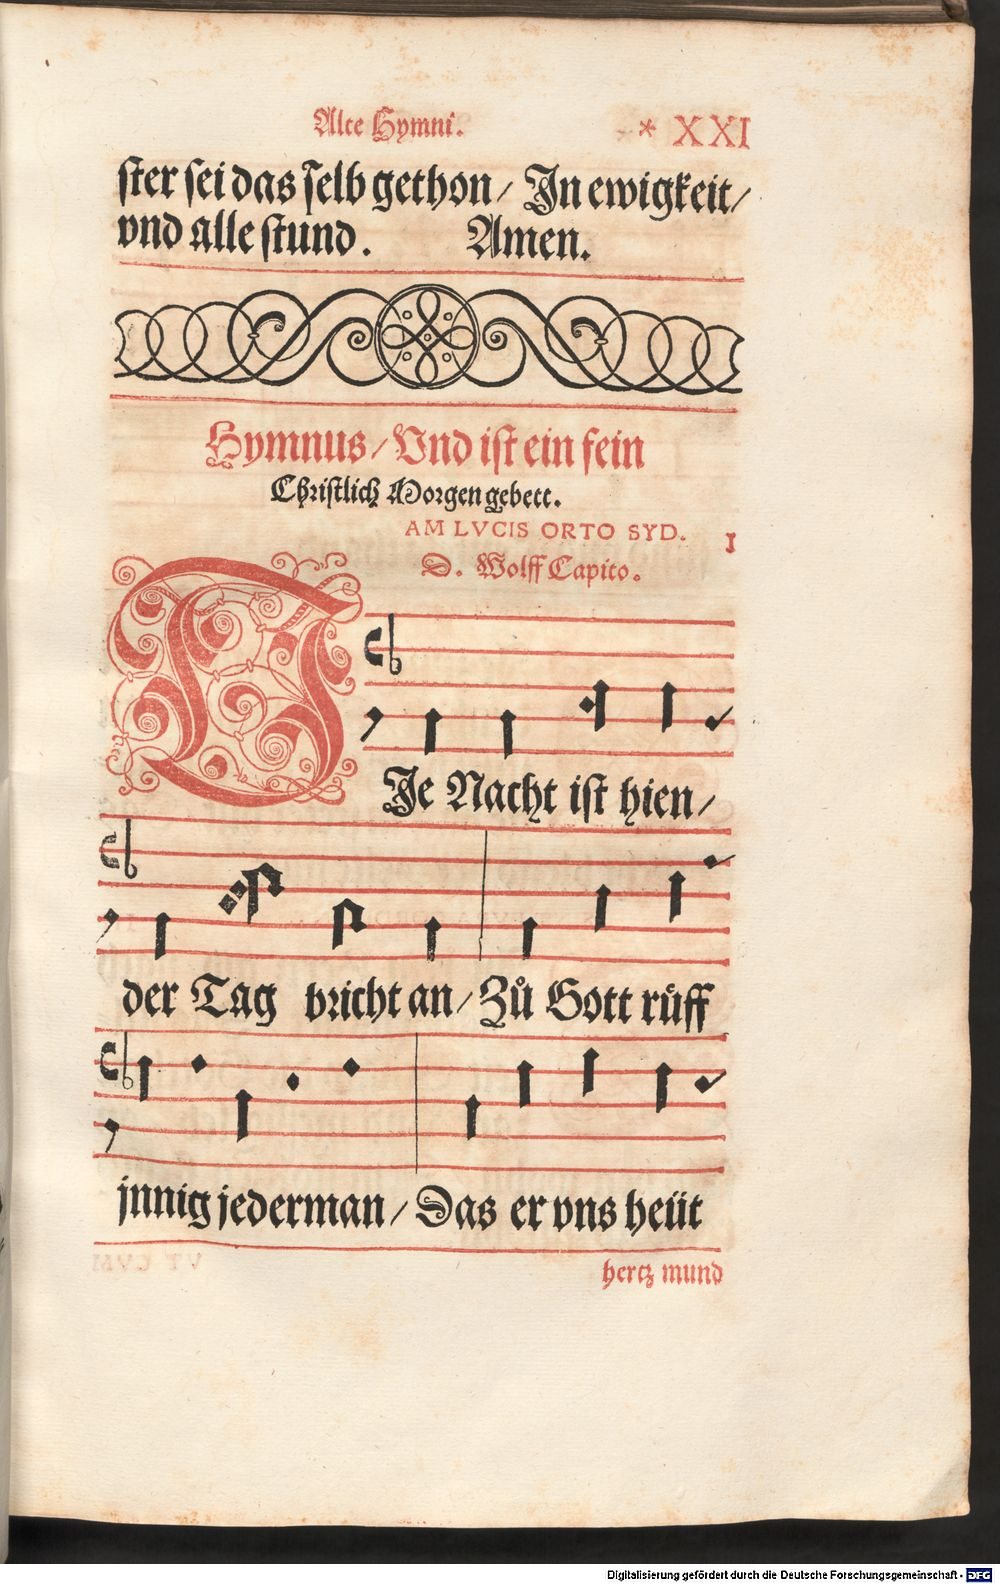 Alte Hymni. * XXI
ſter ſei das ſelb gethon/ In ewigkeit/
vnd alle ſtund. Amen.
Hymnus/ Vnd iſt ein fein
Chriſtlich Morgen gebett.
AM LVCIS ORTO SYD. I
D. Wolff Capito.
DJe Nacht iſt hien/
der Tag bricht an/ Zů Gott růff
jnnig jederman/ Das er vns heüt
hertz mund
Digitalisierung gefördert durch die Deutsche Forschungsgemeinschaft - DFG